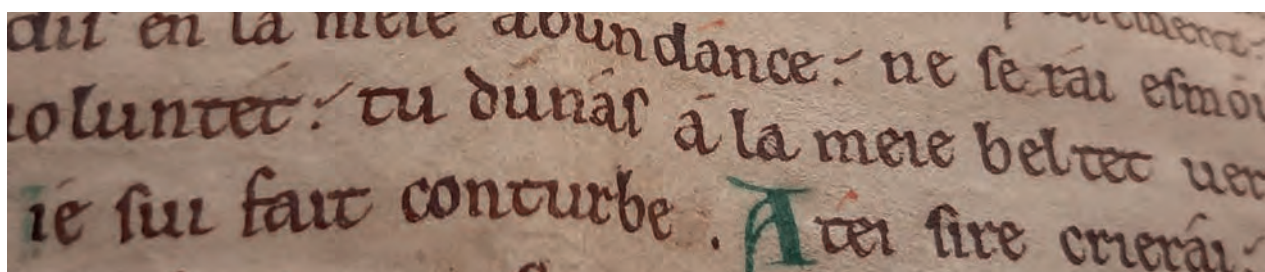 dis en la meie abundánce: ne serái esmóu
uoluntét: tu dunás á la meie beltet uer
ié sui fait conturbe. A téi sire crierái: